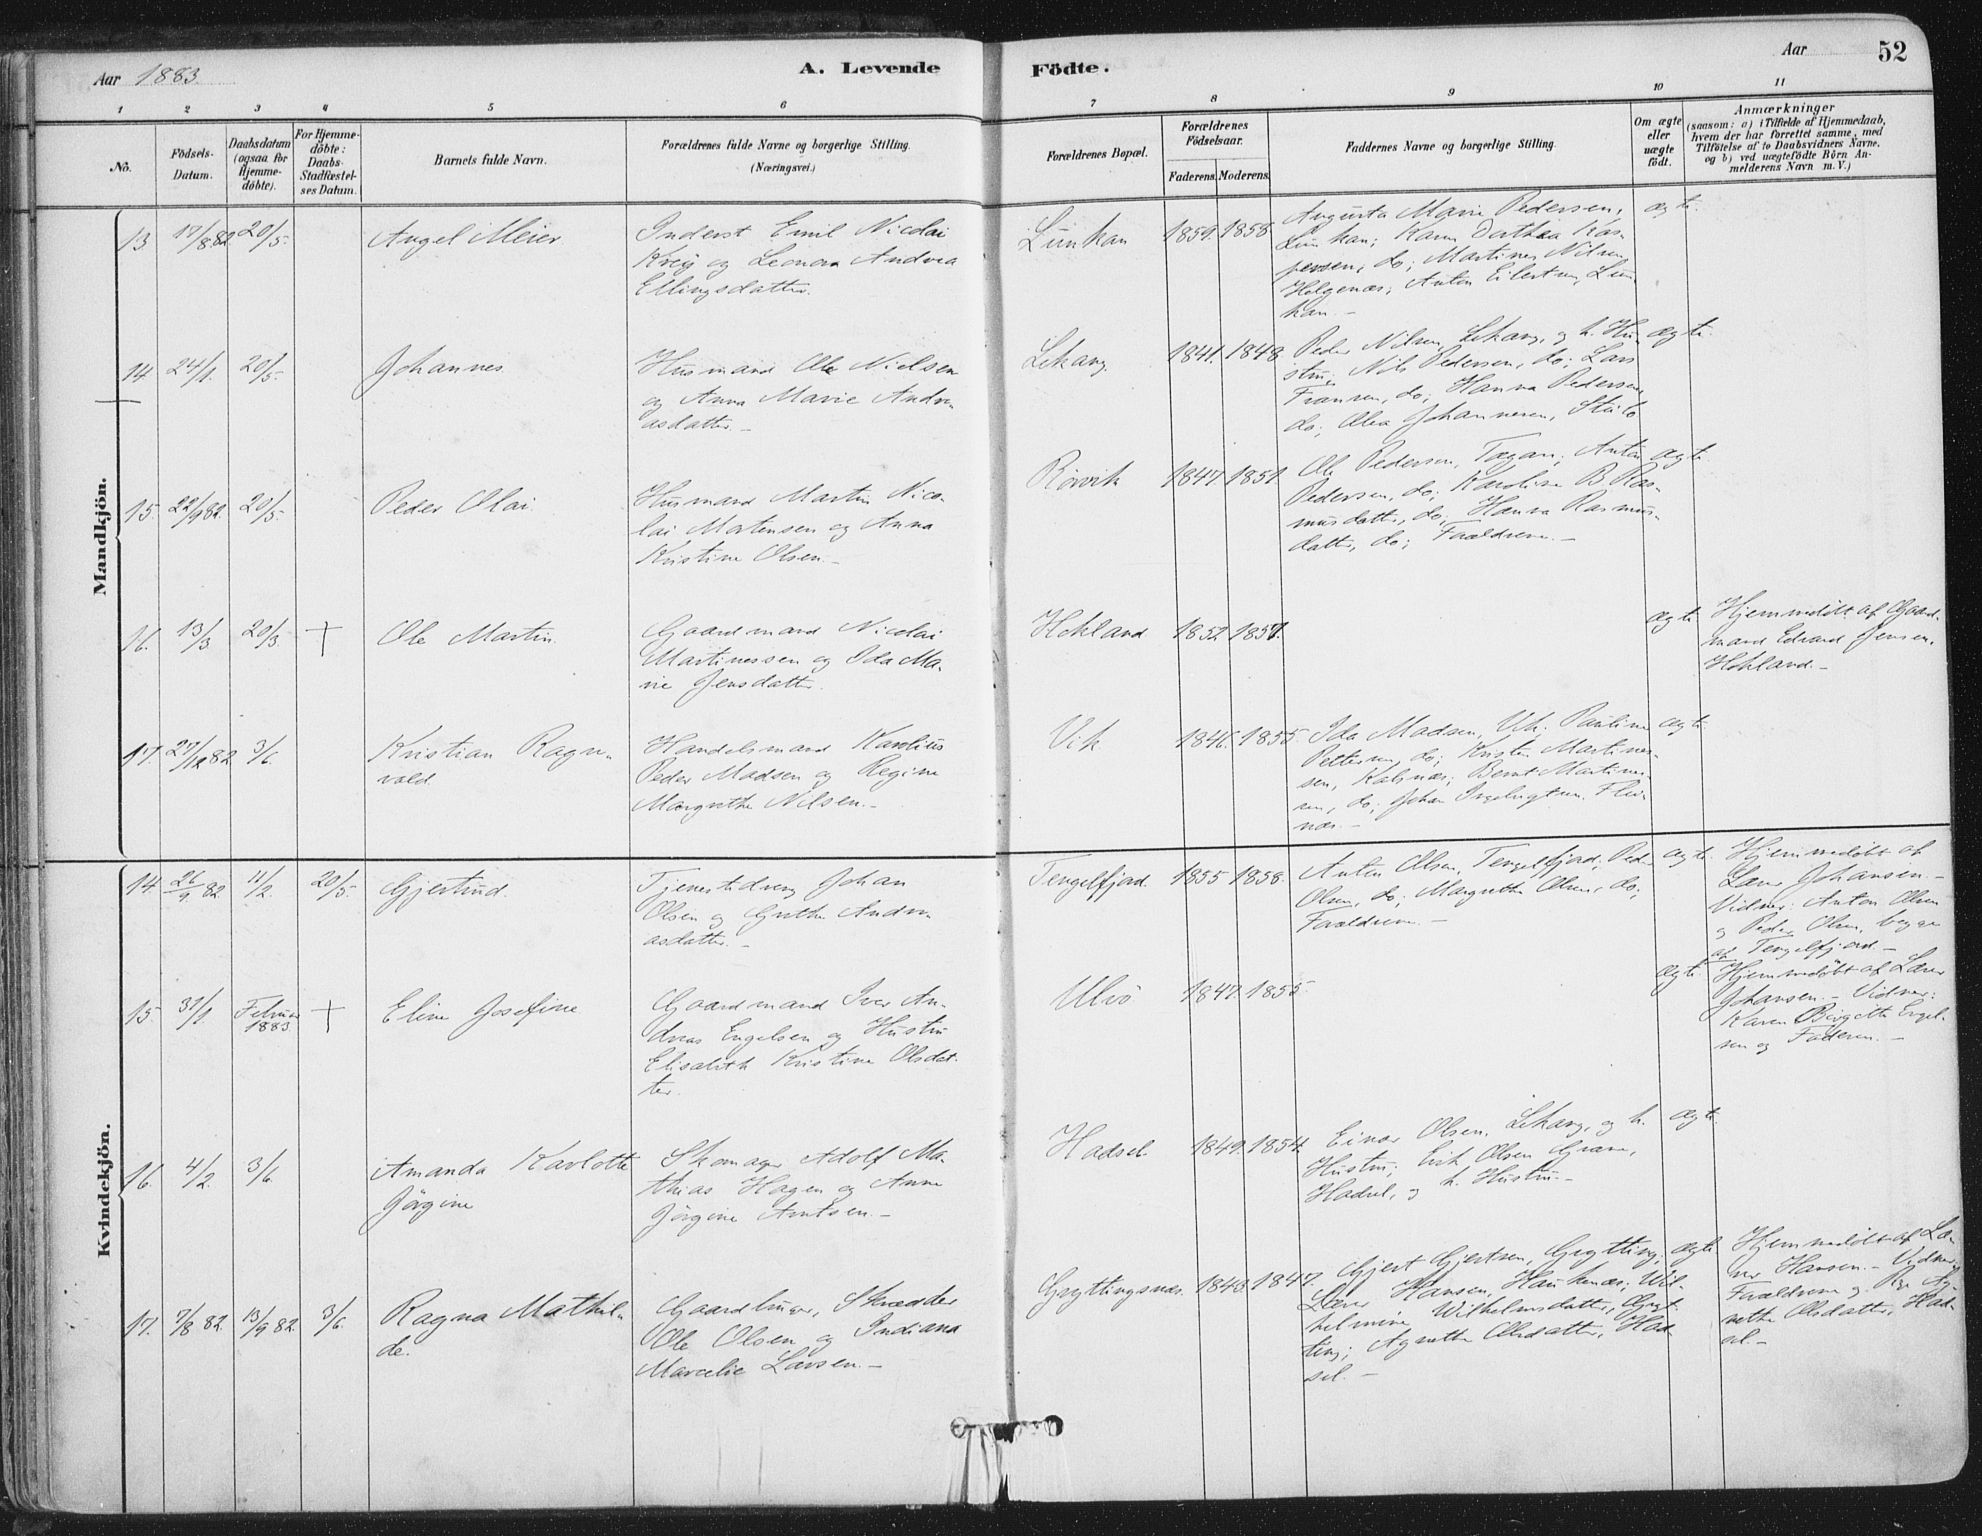 Aar 1883.
A. Levende
Födte.
Aar
52
1 2 3 4 5 6 7 8 9 10 11
No.
Födsels-
Datum.
Daabsdatum
(ogsaa for
Hjemme-
döbte).
For Hjemme-
döbte:
Daabs-
Stadfæstel-
ses Datum.
Barnets fulde Navn.
Forældrenes fulde Navne og borgerlige Stilling.
(Næringsvei.)
Forældrenes Bopæl.
Forældrenes
Födselsaar.
Faderens. Moderens.
Faddernes Navne og borgerlige Stilling.
Om ægte
eller
uægte
födt.
Anmærkninger
(saasom: a) i Tilfælde af Hjemmedaab,
hvem der har forrettet samme, med
Tilföielse af to Daabsvidners Navne,
og b) ved uægtefödte Börn An-
melderens Navn m. V.)
Mandkjön.
13 17/8 82 20/5.
Angel Meier
Inderst Emil Nicolai
Kreij og Leonora Andrea
Ellingsdatter.
Lunkan
1859. 1858.
Augusta Marie Pedersen,
Lunkan; Karen Dorthea Kas-
persen, do; Martines Nilsen
Helgenæs; Anton Eilertsen, Lun-
kan. –
ægte.
14 24/1. 20/5.
Johannes.
Husmand Ole Nielsen
og Anna Marie Andre-
asdatter. –
Lekang.
1841. 1848.
Peder Nilsen, Lekang, og h. Hu-
stru, Nils Pedersen, do; Lars
Fransen, do; Hanna Pedersen,
do; Olea Johannesen,
ægte.
15. 22/9 82. 20/5.
Peder Olai.
Husmand Martin Nico-
lai Mortensen og Anna
Kristine Olsen. –
Rörvik
1847. 1851.
Ole Pedersen, Anton
Pedersen, do; Karoline B Ras-
musdatter, do; Hanna Rasmus-
datter, do; Forældrene. –
ægte.
16. 13/3 20/3. +
Ole Martin.
Gaardmand Nicolai
Martinessen og Ida Ma-
rie Jensdatter.
Hokland
1852. 1857.
ægte.
Hjemmedöbt af Gaard-
mand Edvard Jensen,
Hokland. –
17. 27/12 82 3/6.
Kristian Ragn-
vald.
Handelsmand Karolius
Peder Madsen og Regine
Margrethe Nilsen. –
Vik
1846. 1855.
Ida Madsen, Vik. Pauline
Pettersen, do; Martines-
sen, Kalsnæs; Bernt Martines-
sen, do; Johan Fles-
næs. –
ægte.
Kvindekjön.
14. 26/9 82. 11/2. 20/5.
Gjertrud.
Tjenestedreng Johan
Olsen og Grethe Andre-
asdatter. –
Tengelfjord.
1855 1858.
Anton Olsen, Tengelfjord; Peder
Olsen, do; Margrethe Olsen, do;
Forældrene. –
ægte.
Hjemmedöbt af
Lærer Johansen. –
Vidner: Anton Olsen
og Peder Olsen, begge
af Tengelfjord –
15. 31/1. Februar
1883. +
Eline Josefine
Gaardmand Iver An-
dreas Engelsen og Hustru
Elisabeth Kristine Olsdat-
ter.
Ulvö
1847. 1855.
ægte.
Hjemmedöbt af Lærer
Johansen. – Vidner:
Karen Birgitte Engel-
sen og Faderen. –
16. 4/2. 3/6.
Amanda Karlotte
Jörgine
Skomager Adolf Ma-
thias Hagen og Anne
Jörgine Arntsen. –
Hadsel.
1849. 1854.
Einar Olsen, Lekang, og h.
Hustru; Erik Olsen Grane,
Hadsel, og h. Hustru. –
ægte.
17. 7/8 82. 13/9 82. 3/6.
Ragna Mathil-
de.
Gaardbruger, Skrædder
Ole Olsen og Indiana
Marcelie Larsen. –
Grytingsnæs.
1843. 1847.
Gjert Gjertsen, Gryting;
Lærer Hansen, Haukenæs; Wil-
helmine Wilhelmsdatter, Gryt-
ting; Agnethe Olsdatter, Had-
sel. –
ægte.
Hjemmedöbt af Læ-
rer Hansen. – Vidner
Forældrene og Pige Ag-
nethe Olsdatter, Had-
sel. –